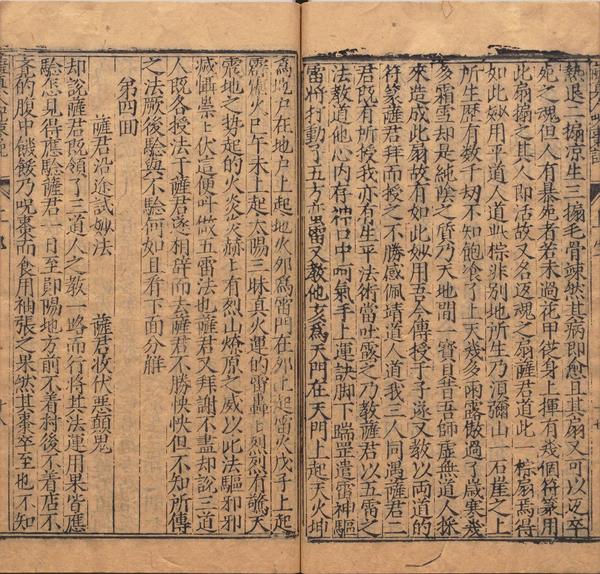 熱退二搧凉生三搧毛骨竦然其病即愈且其扇又可以返卒
死之魂但人有暴死者若未過花甲從身上揮有幾個符篆用
此扇搧之其人即活故又名返魂之扇薩君道此 棕扇焉得
如此妙用平道人道此棕非别地所生乃須彌山一石崖之上
所生歷有数千刼不知飽飡了上天幾多雨露傲過了歲寒幾
多霜雪却是純陰之質乃天地間一寶貝昔吾師虛無道人採
來造成此扇故有如此妙用吾今傳授于子遂又教以兩道的
符篆薩君拜而授之不勝感佩靖道人道我三人同遇薩君二
君既有所授我亦有生平法術當吐露之乃教薩君以五雷之
法教道他心内存神口中呵氣手上運訣脚下踹罡遣雷神驅
雷將打動了五方蛮雷又教他亥為天門在天門上起天火坤
為地户在地户上起地火卯為雷門在卯上起雷火戊子上起
霹靂火巳午未上起太陽三昧真火運的雷轟轟烈烈有驚天
震地之勢起的火炎炎赫赫上有烈山燎原之威以此法驅邪邪
滅懾祟祟伏這便叫做五雷法也薩君又拜謝不盡却說三道
人既各授法于薩君遂相辞而去薩君不勝怏怏但不知所傳
之法厥後驗與不驗何如且看下面分解
第四回
薩君沿途試妙法 薩君收伏惡顛鬼
却說薩君既領了三道人之教一路而行將其法運用果皆應
驗怎見得應驗薩君一日至郎陽地方前不着村後不着店不
覺的腹中饑餒乃呪棗而食用袖張之果然其棗卒至也不知